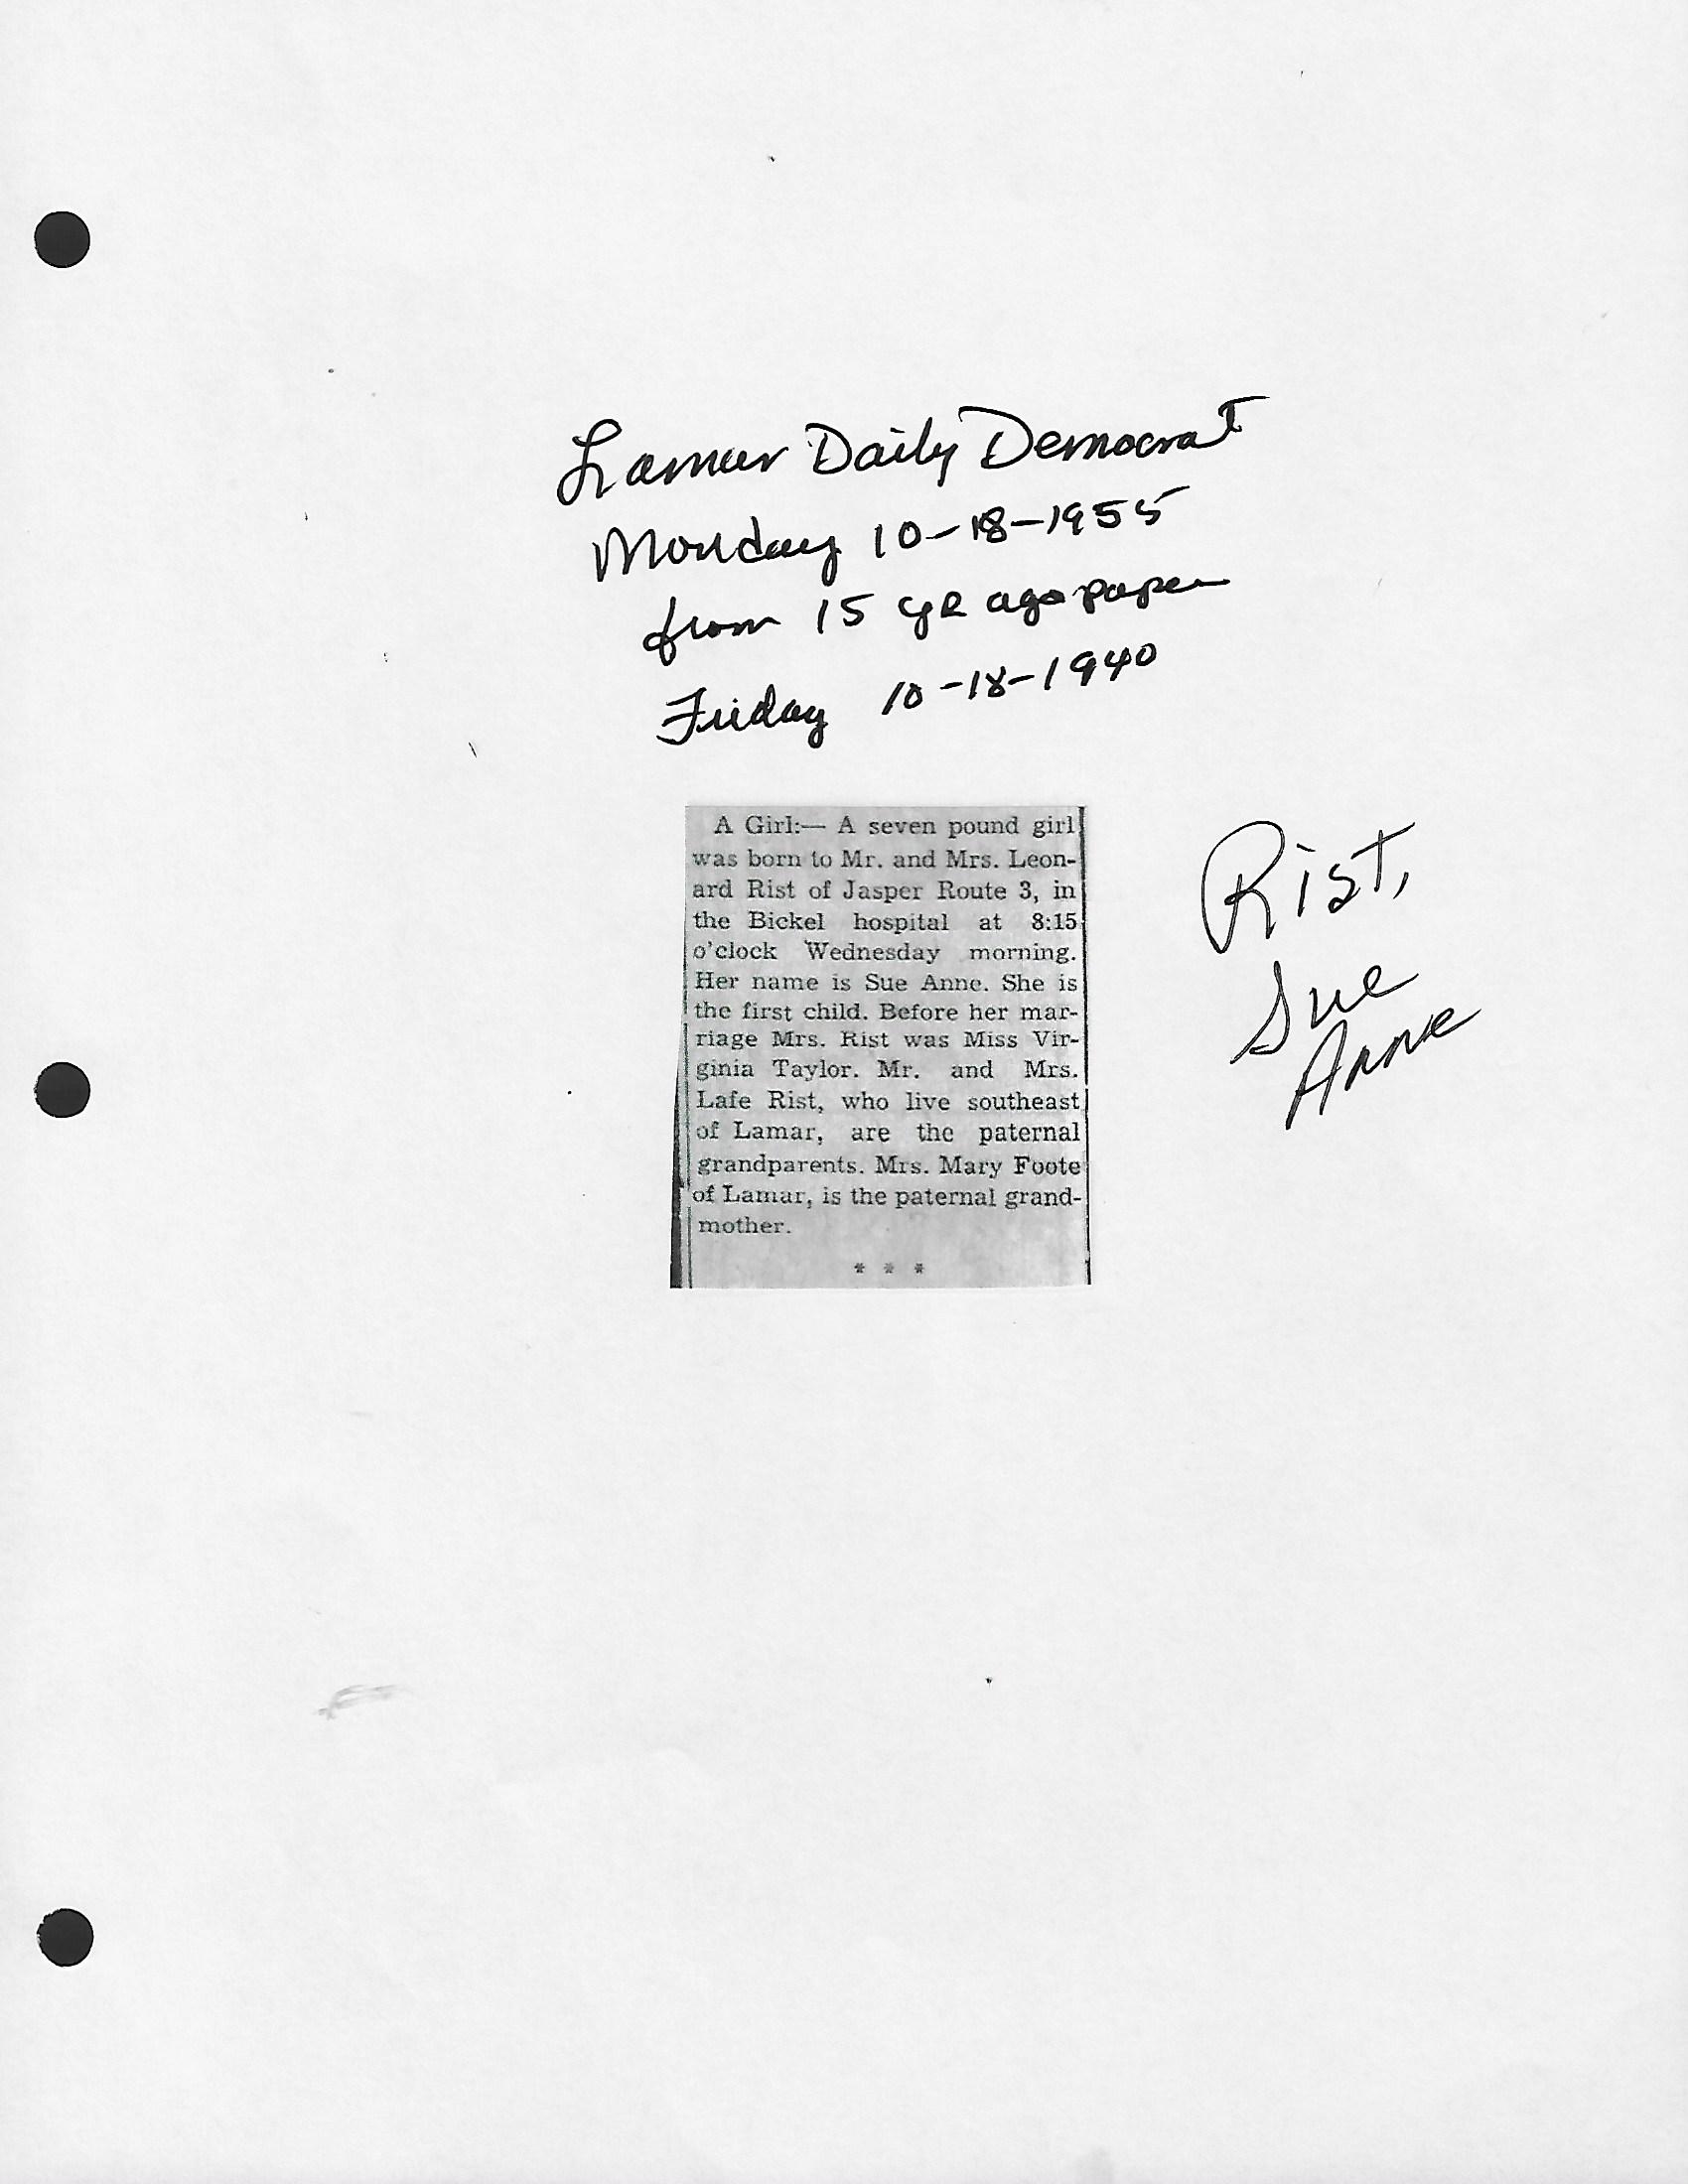 Lamar Daily Democrat
Monday 10-18-1955
from 15 yr ago paper
Friday 10-18-1940
A Girl:— A seven pound girl
was born to Mr. and Mrs. Leon-
ard Rist of Jasper Route 3, in
the Bickel hospital at 8:15
o'clock Wednesday morning.
Her name is Sue Anne. She is
the first child. Before her mar-
riage Mrs. Rist was Miss Vir-
ginia Taylor. Mr. and Mrs.
Lafe Rist, who live southeast
of Lamar, are the paternal
grandparents. Mrs. Mary Foote
of Lamar, is the paternal grand-
mother.
* * *
Rist,
Sue
Anne